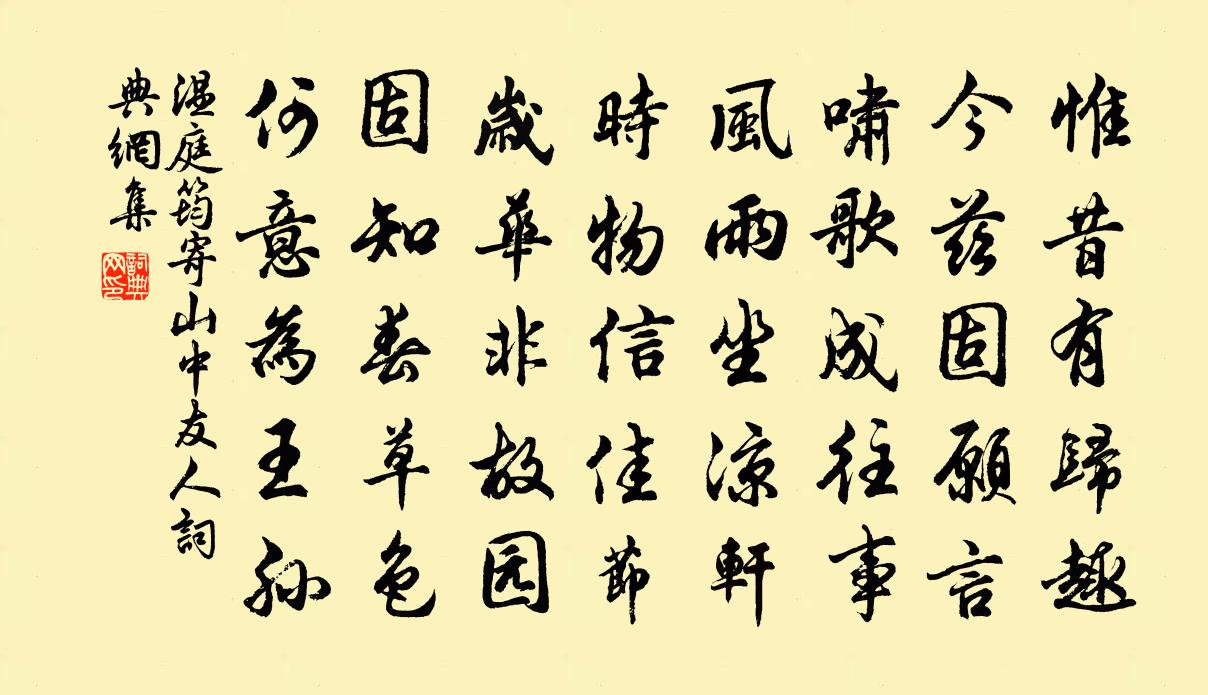 惟昔有歸趣
今茲固願言
嘯歌成往事
風雨坐涼軒
時物信佳節
歲華非故园
固知春草色
何意為王孫
温庭筠寄山中友人詞
典網集
詞典
网印